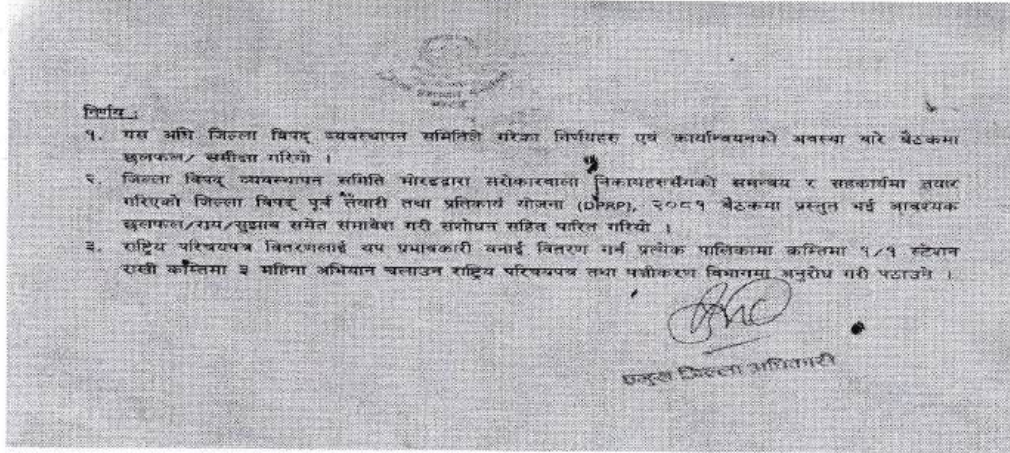 निर्णय :
१. यस अघि जिल्ला विपद् व्यवस्थापन समितिले गरेका निर्णयहरु एवं कार्यान्वयनको अवस्था बारे बैठकमा
छलफल/ समीक्षा गरियो ।
२. जिल्ला विपद् व्यवस्थापन समिति मोरङद्वारा सरोकारवाला निकायहरुसँगको समन्वय र सहकार्यमा तयार
गरिएको जिल्ला विपद् पूर्व तयारी तथा प्रतिकार्य योजना (DPRP), २०८१ बैठकमा प्रस्तुत भई आवश्यक
छलफल/राय/सुझाव समेत समावेश गरी संशोधन सहित पारित गरियो ।
३. राष्ट्रिय परिचयपत्र वितरणलाई थप प्रभावकारी बनाई वितरण गर्न प्रत्येक पालिकामा कम्तिमा १/१ स्टेशन
राखी कम्तिमा ३ महिना अभियान चलाउन राष्ट्रिय परिचयपत्र तथा पञ्जीकरण विभागमा अनुरोध गरी पठाउने ।
प्रमुख जिल्ला अधिकारी